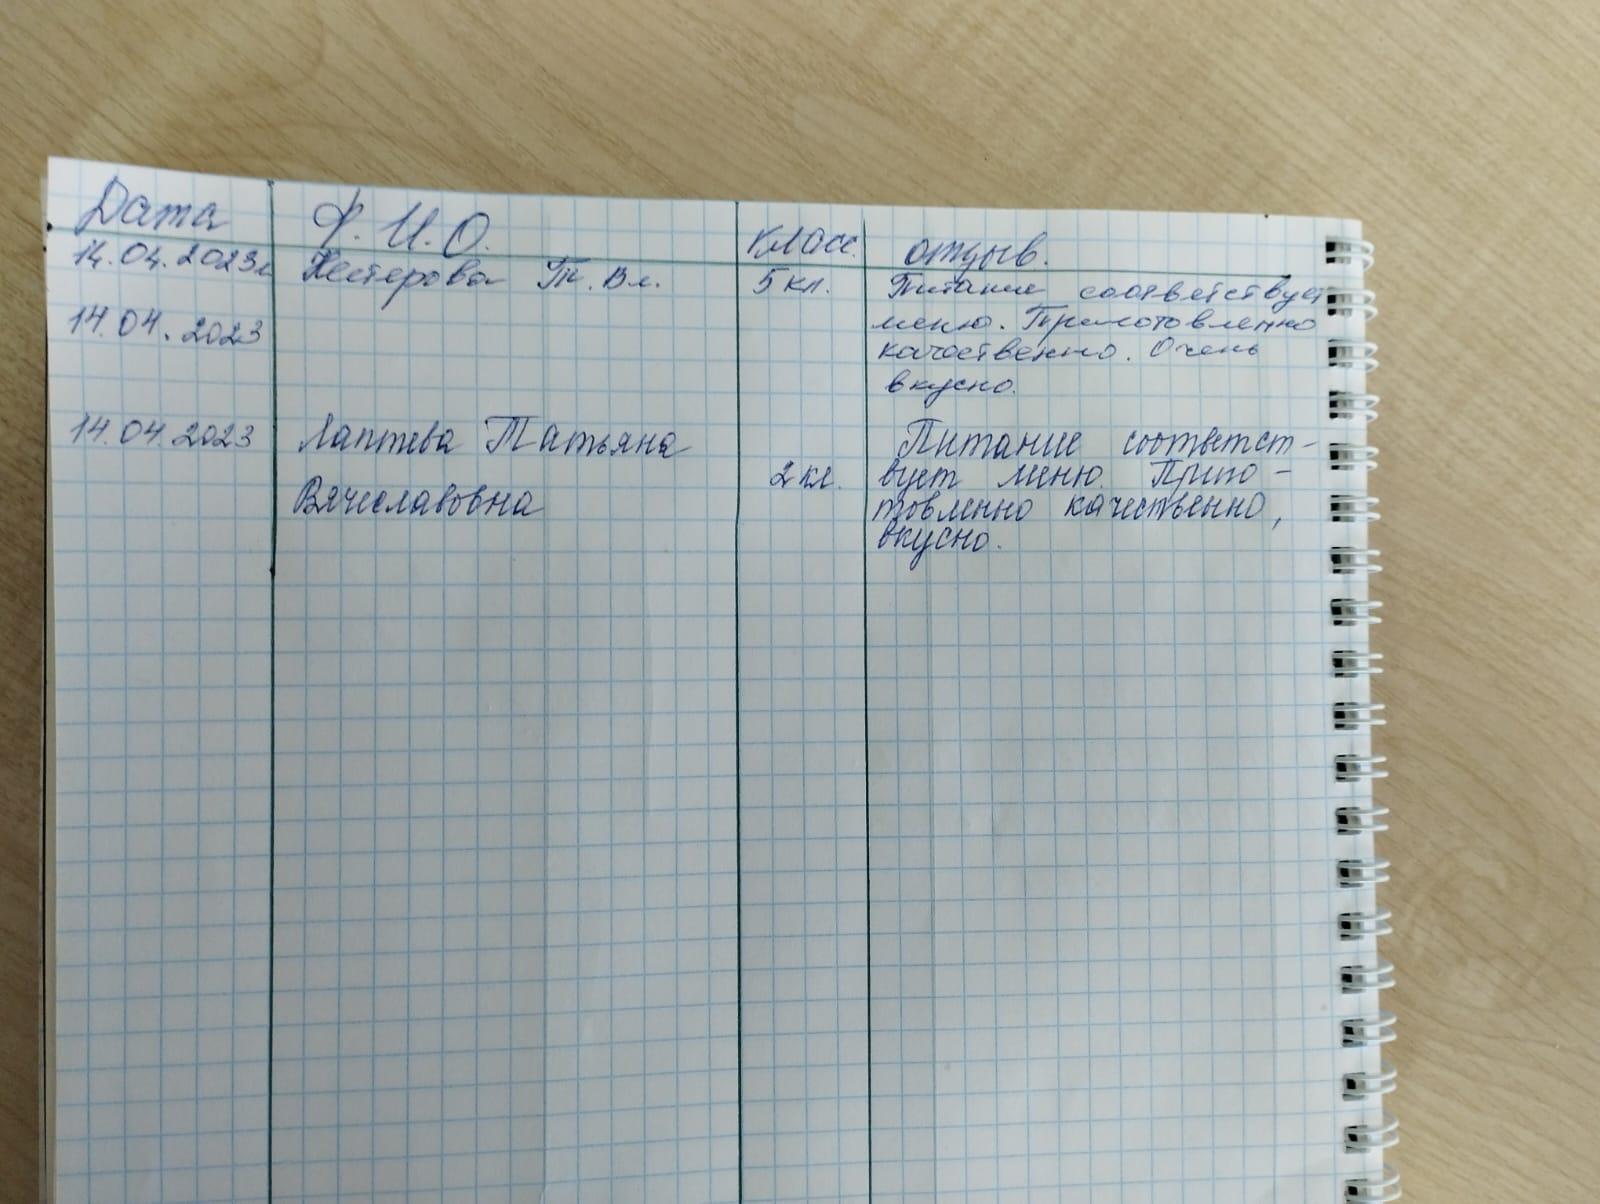 Дата Ф.И.О. Класс отзыв.
14.04.2023г Нестерова Т. Вл. 5 кл. Питание соответствует
14.04.2023 меню. Приготовленно
качественно. Очень
вкусно.
14.04.2023 Лаптева Татьяна Питание соответст-
2 кл. вует меню. Приго-
Вячеславовна товленно качественно,
вкусно.